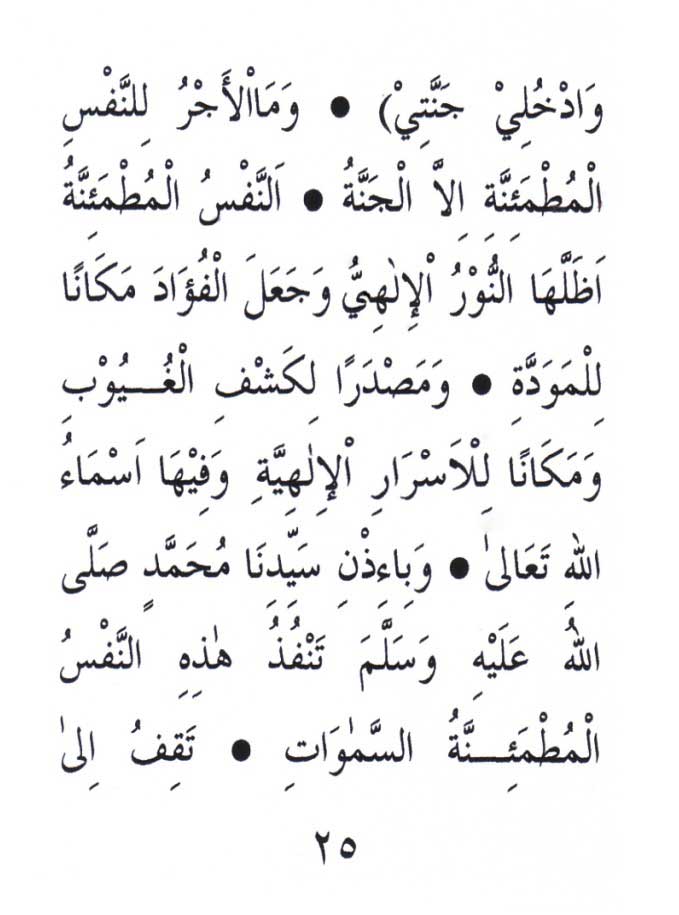 وَادْخُلِيْ جَنَّتِيْ) ● وَمَااْلأَجْرُ لِلنَّفْسِ
الْمُطْمَئِنَّةِ اِلاَّ الْجَنَّةُ ● اَلنَّفْسُ الْمُطْمَئِنَّةُ
اَظَلَّهَا النُّوْرُ اْلإِلٰهِيُّ وَجَعَلَ الْفُؤَادَ مَكَانًا
لِلْمَوَدَّةِ ● وَمَصْدَرًا لِكَشْفِ الْغُـــيُوْبِ
وَمَكَانًا لِلْاَسْرَارِ اْلإِلٰهِيَّةِ وَفِيْهَا اَسْمَاءُ
اللهِ تَعَالىٰ ● وَبِاءِذْنِ سَيِّدِنَا مُحَمَّدٍ صَلَّى
اللهُ عَلَيْهِ وَسَلَّمَ تَنْفُذُ هٰذِهِ النَّفْسُ
الْمُطْمَئِـــنَّةُ السَّمٰوَاتِ ● تَقِفُ اِلىٰ
٢٥